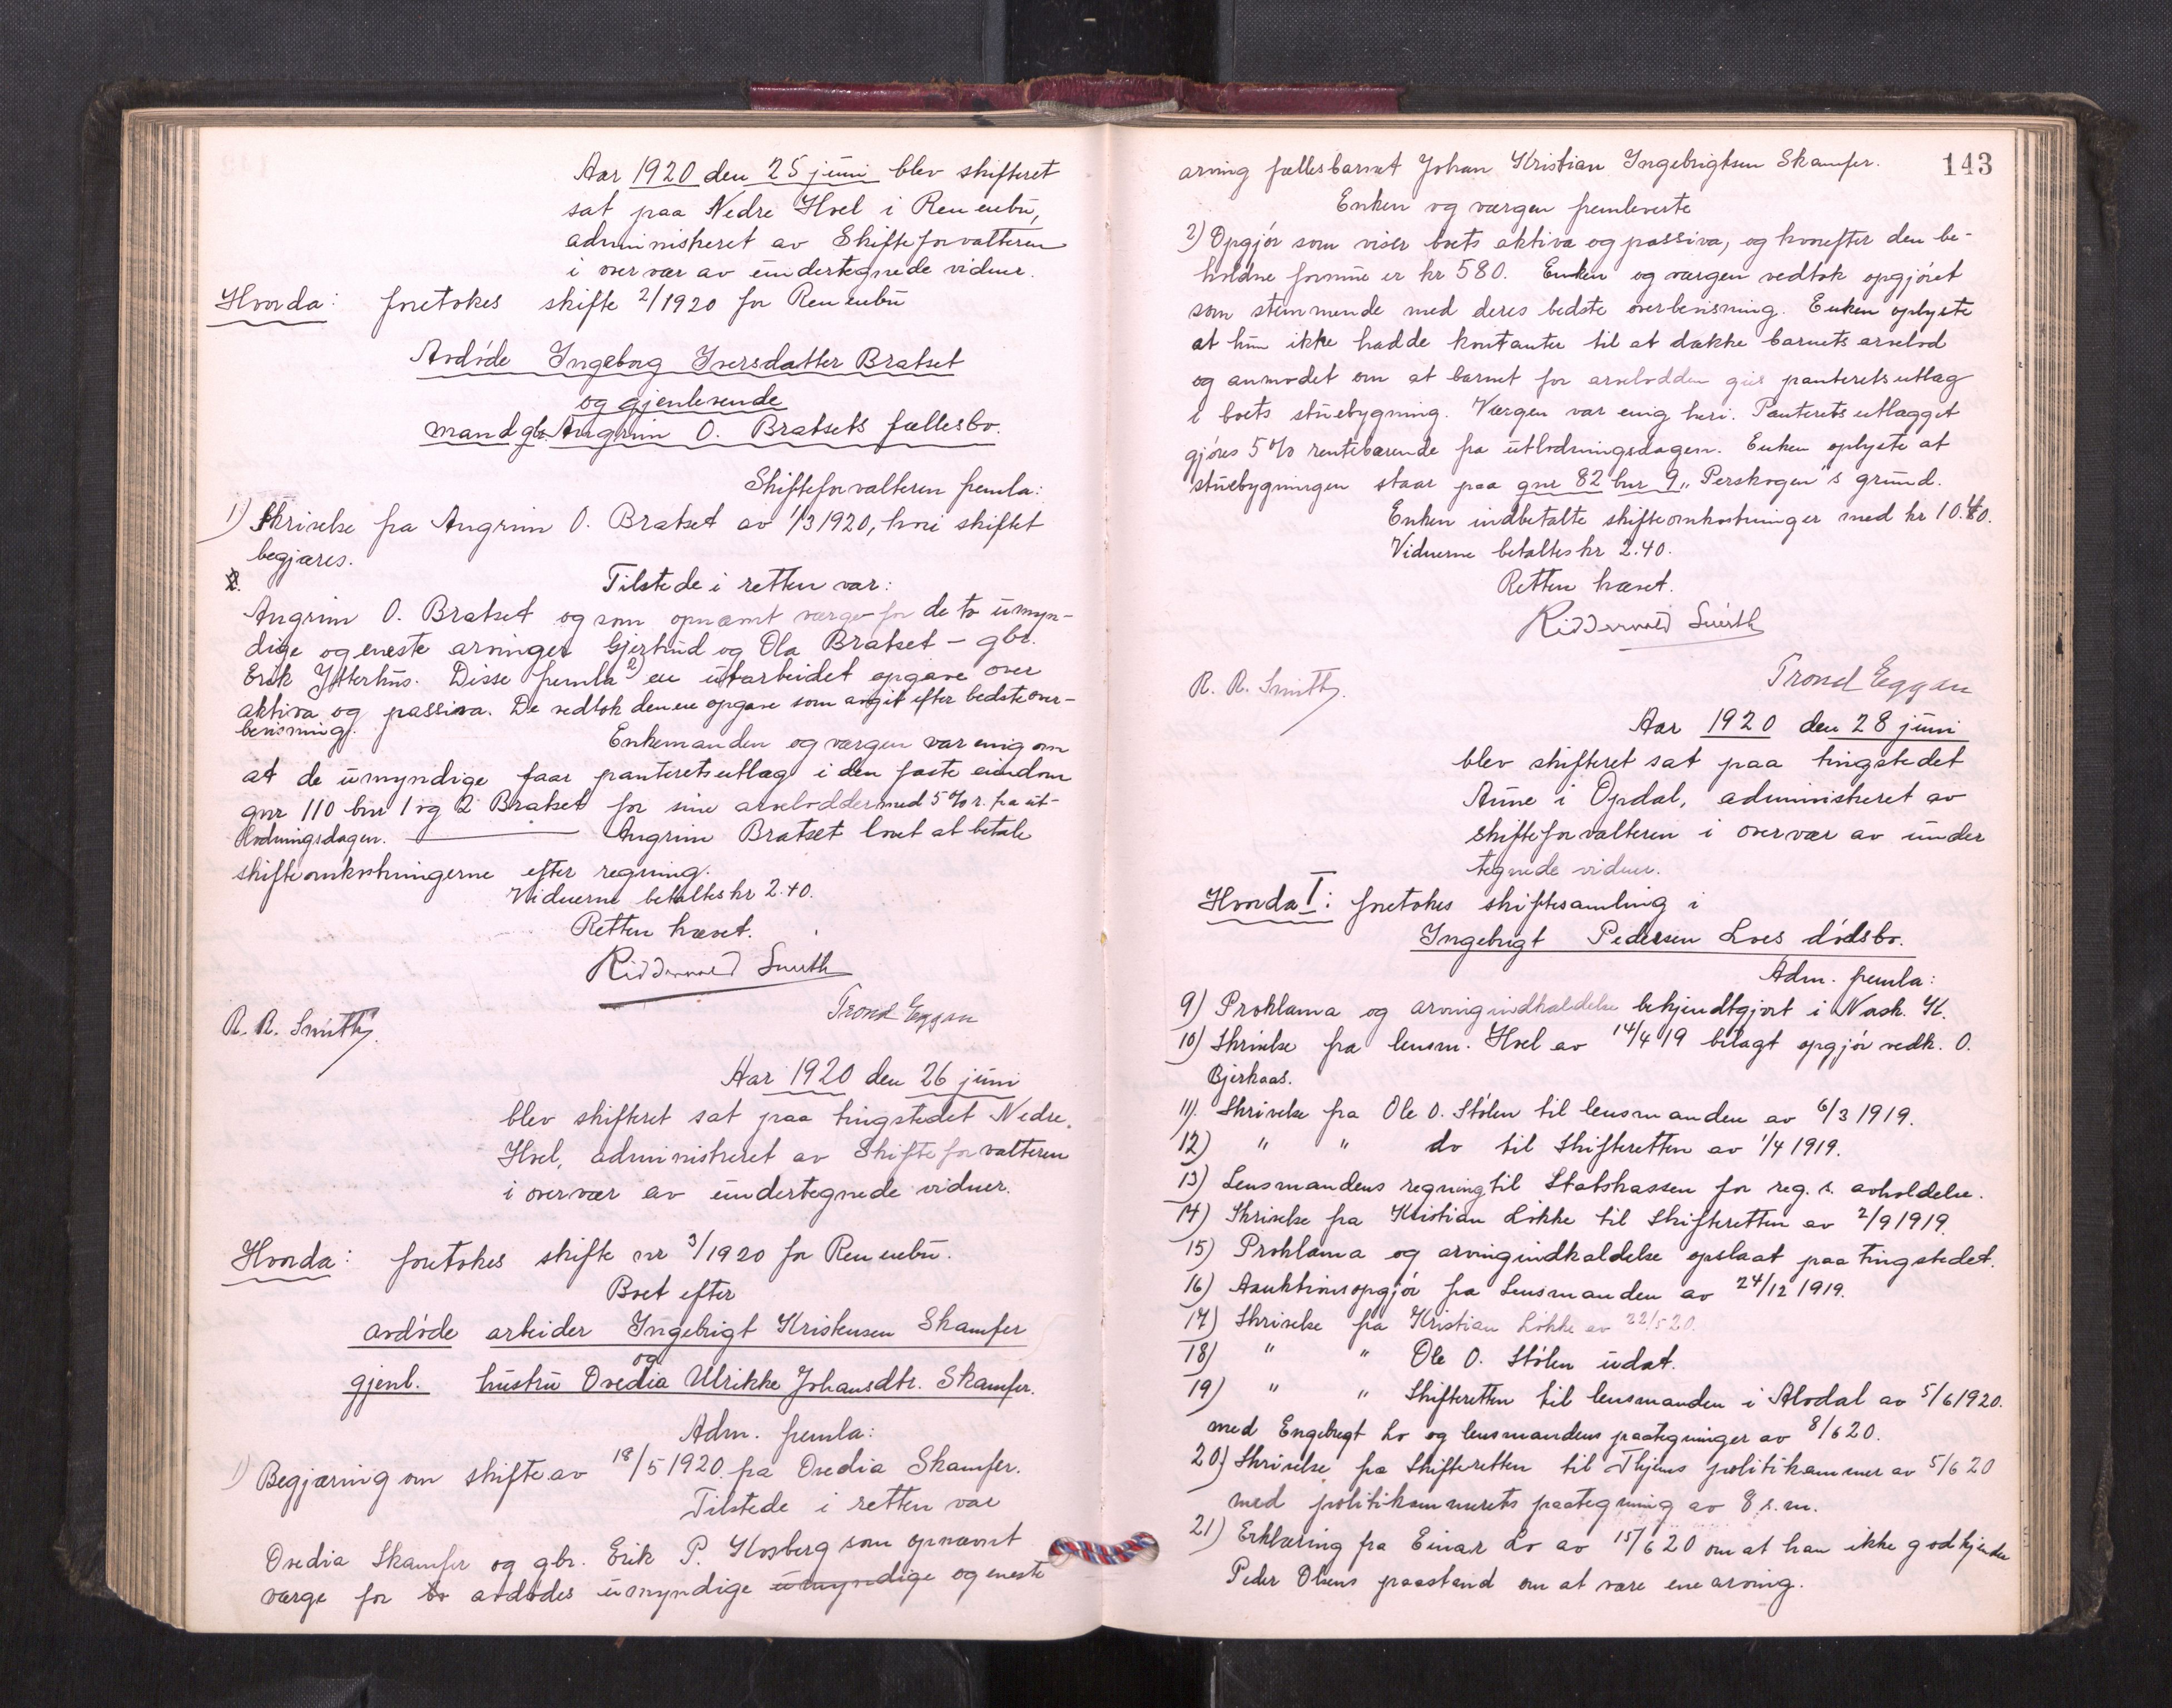 Aar 1920 den 25 juni blev skifteret
sat paa Nedre Hoel i Rennebu,
administreret av Skifteforvalteren
i overvær av undertegnede vidner.
Hvorda: foretokes skifte 2/1920 for Rennebu
Avdøde Ingeborg Iversdatter Bratset
og gjenlevende
mand gbr. Angrim O. Bratsets fællesbo.
Skifteforvalteren fremla:
1) Skrivelse fra Angrim O. Bratset av 1/3 1920, hvori skiftet
begjæres.
Tilstede i retten var:
Angrim O. Bratset og som opnævnt verge for de to umyn-
dige og eneste arvinger Gjertrud og Ola Bratset - gbr.
Erik Ytterhus. Disse fremla 2) en utarbeidet opgave over
aktiva og passiva. De vedtok denne opgave som avgit efter bedste over-
bevisning.
Enkemanden og værgen var enig om
at de umyndige faar panteretsutlæg i den faste eiendom
gnr 110 bnr 1 og 2 Bratset for sine arvelodder med 5 % r. fra ut-
lodningsdagen. Angrim Bratset lovet at betale
skifteomkostningerne efter regning.
Vidnerne betaltes kr 2.40.
Retten hævet.
Ridderwold Smith
R. R. Smith
Trond Eggan
Aar 1920 den 26 juni
blev skifteret sat paa tingstedet Nedre
Hoel, administreret av Skifteforvalteren
i overvær av undertegnede vidner.
Hvorda: foretokes skifte nr 3/1920 for Rennebu.
Boet efter
avdøde arbeider Ingebrigt Kristensen Skamfer
og
gjenl. hustru Ovedia Ulrikke Johansdtr. Skamfer.
Adm. fremla:
1) Begjæring om skifte av 18/5 1920 fra Ovedia Skamfer.
Tilstede i retten var
Ovedia Skamfer og gbr. Erik P. Kosberg som opnævnt
værge for to avdødes umyndige umyndige og eneste
143
arving fællesbarnet Johan Kristian Ingebrigtsen Skamfer.
Enken og værgen fremleverte
2) Opgjør som viser boets aktiva og passiva, og hvorefter den be-
holdne formue er kr 580. Enken og værgen vedtok opgjøret
som stemmende med deres bedste overbevisning. Enken oplyste
at hun ikke hadde kontanter til at dække barnets arvelod
og anmodet om at barnet for arvelodden gis panteretsutlæg
i boets stuebygning. Værgen var enig heri. Panteretsutlægget
gjøres 5 % rentebærende fra utlodningsdagen. Enken oplyste at
stuebygningen staar paa gnr 82 bnr 9 "Perskogen"s grund.
Enken indbetalte skifteomkostninger med kr 10.40.
Vidnerne betaltes kr 2.40.
Retten hævet.
Ridderwold Smith
R. R. Smith
Trond Eggan
Aar 1920 den 28 juni
blev skifteret sat paa tingstedet
Aune i Opdal, administreret av
skifteforvalteren i overvær av under
tegnede vidner.
Hvorda I: foretokes skiftesamling i
Ingebrigt Pedersen Loes dødsbo.
Adm. fremla:
9) Proklama og arvingindkaldelse bekjendtgjort i Norsk. K.
10) Skrivelse fra lensm. Hoel av 14/4 19 bilagt opgjør vedk. O.
Bjerkaas.
11) Skrivelse fra Ole O. Stølen til lensmanden av 6/3 1919.
12) " " do til Skifteretten av 1/4 1919.
13) Lensmandens regning til Statskassen for reg. s. avholdelse.
14) Skrivelse fra Kristian Løkke til Skifteretten av 2/9 1919.
15) Proklama og arvingindkaldelse opslaat paa tingstedet.
16) Auktionsopgjør fra Lensmanden av 24/12 1919.
17) Skrivelse fra Kristian Løkke av 22/5 20.
18) " " Ole O. Stølen udat.
19) " " Skifteretten til lensmanden i Alvdal av 5/6 1920.
med Engebregt Lo og lensmandens paategninger av 8/6 20.
20) Skrivelse fra Skifteretten til Thjems politikammer av 5/6 20
med politikammerets paategning av 8 s.m.
21) Erklæring fra Einar Lo av 15/6 20 om at han ikke godkjender
Peder Olsens paastand om at være enearving.